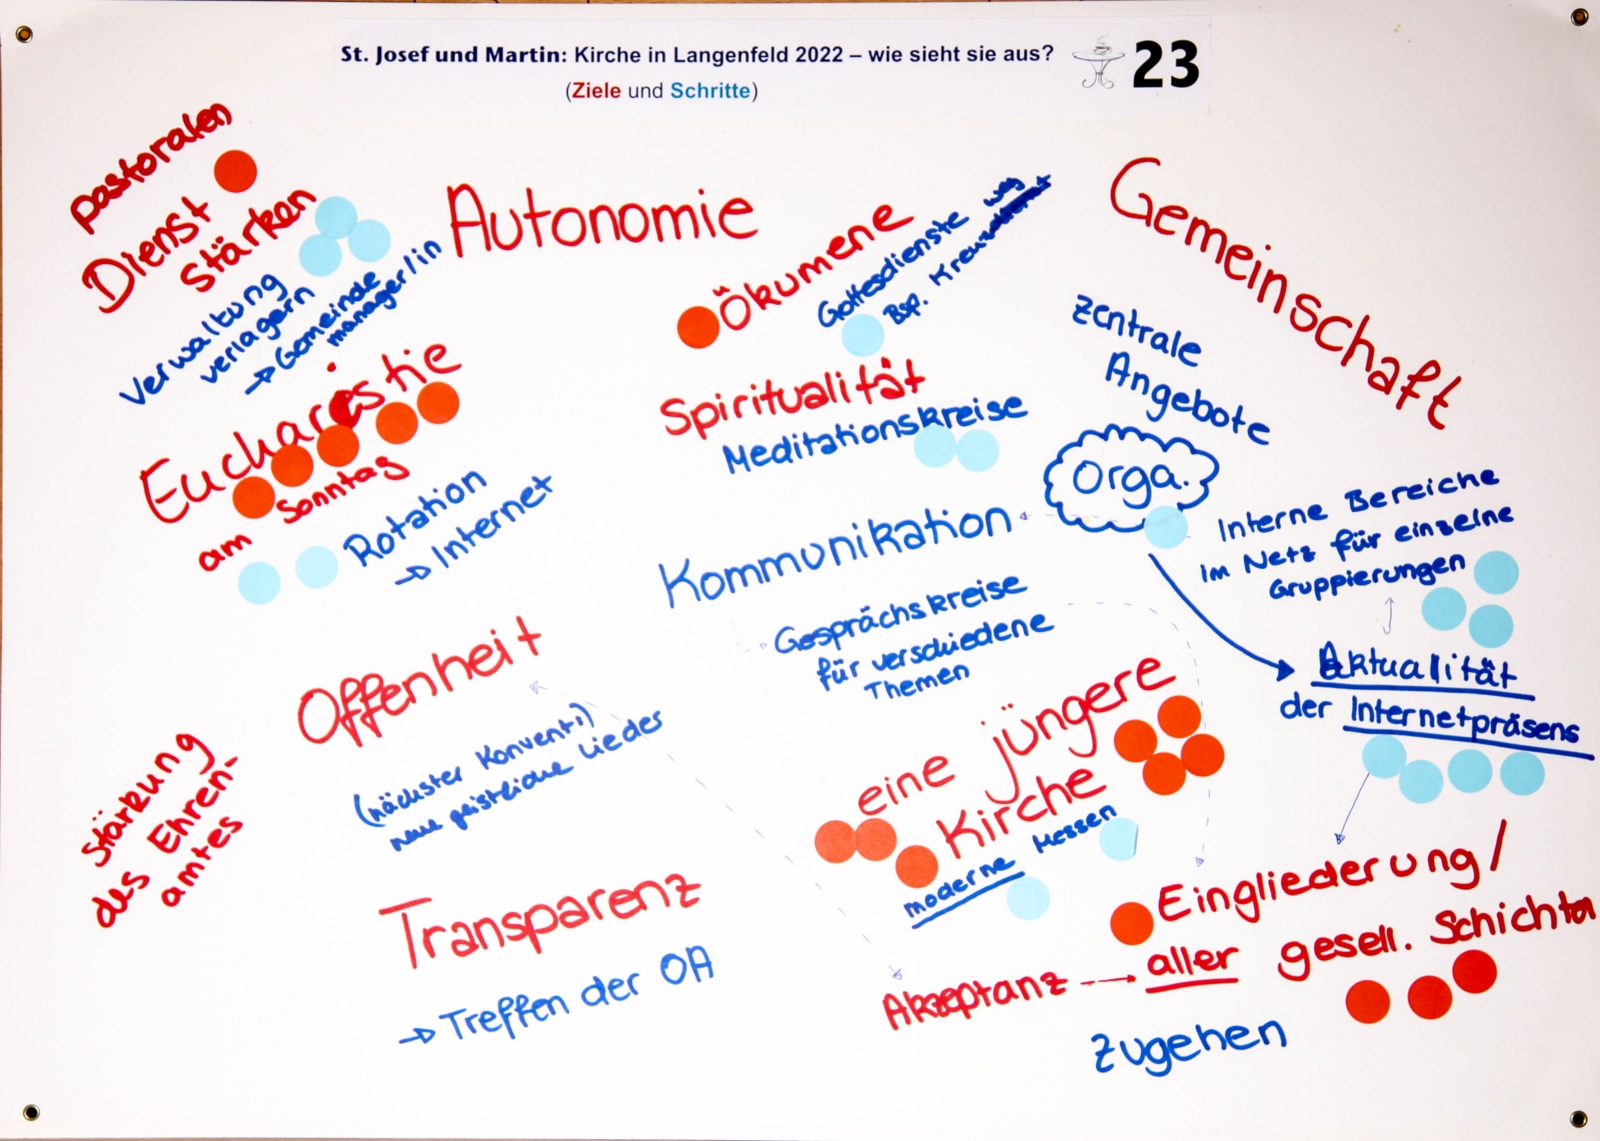 St. Josef und Martin: Kirche in Langenfeld 2022 – wie sieht sie aus?
(Ziele und Schritte)
23
pastoralen
Dienst
stärken
Verwaltung
verlagern
→ Gemeinde
manager/in
Autonomie
Ökumene
Gottesdienste
Bsp.
Gemeinschaft
zentrale
Angebote
Eucharestie
am Sonntag
Rotation
→ Internet
Spiritualität
Meditationskreise
Orga.
Kommunikation
Gesprächskreise
für verschiedene
Themen
Interne Bereiche
im Netz für einzelne
Gruppierungen
Aktualität
der Internetpräsens
Offenheit
(nächster Konvent!)
neue geistliche Lieder
Stärkung
des Ehren-
amtes
eine jüngere
Kirche
moderne Messen
Transparenz
→ Treffen der OA
Eingliederung/
Akzeptanz → aller gesell. Schichten
zugehen